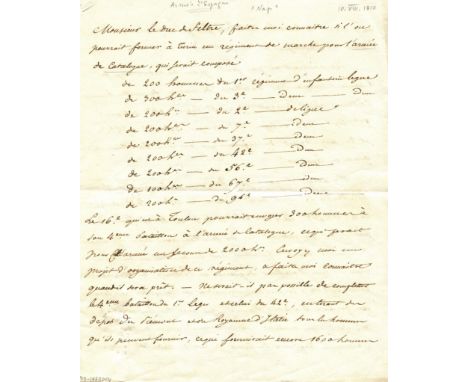 Armée d'Espagne "Nap" 10. VIII. 1810
Monsieur le duc de Feltre, faites moi connaitre si l'on
pourrait former à turin un régiment de marche pour l'armée
de Catalogne, qui serait composé
de 200 hommes du 1er régiment d'infanterie légère
de 300 hes — du 3e — Dem — Dem
de 200 hes — du 2e — de ligne
de 200 hes — de 7e — Dem
de 200 hes — du 37e — Dem
de 200 hes — du 42e — Dem
de 200 hes — du 56e — Dem
de 100 hes — du 67e — Dem
de 200 hes — du 93e — Dem
Le 16e qui est à Toulon pourrait envoyer 300 hommes à
son 4eme bataillon à l'armée de Catalogne, ce qui ferait
pour l'armée un secours de 2000 hes. Envoyez moi un
projet d'organisation de ce régiment, et faites moi connaitre
quand il sera prêt. — Ne serait-il pas possible de completter
le 4eme bataillon du 1er léger et celui du 42e, en tirant des
dépots du Piémont et du Royaume d'Italie tous les hommes
qu'ils peuvent fournir, ce qui fournirait encore 1600 hommes